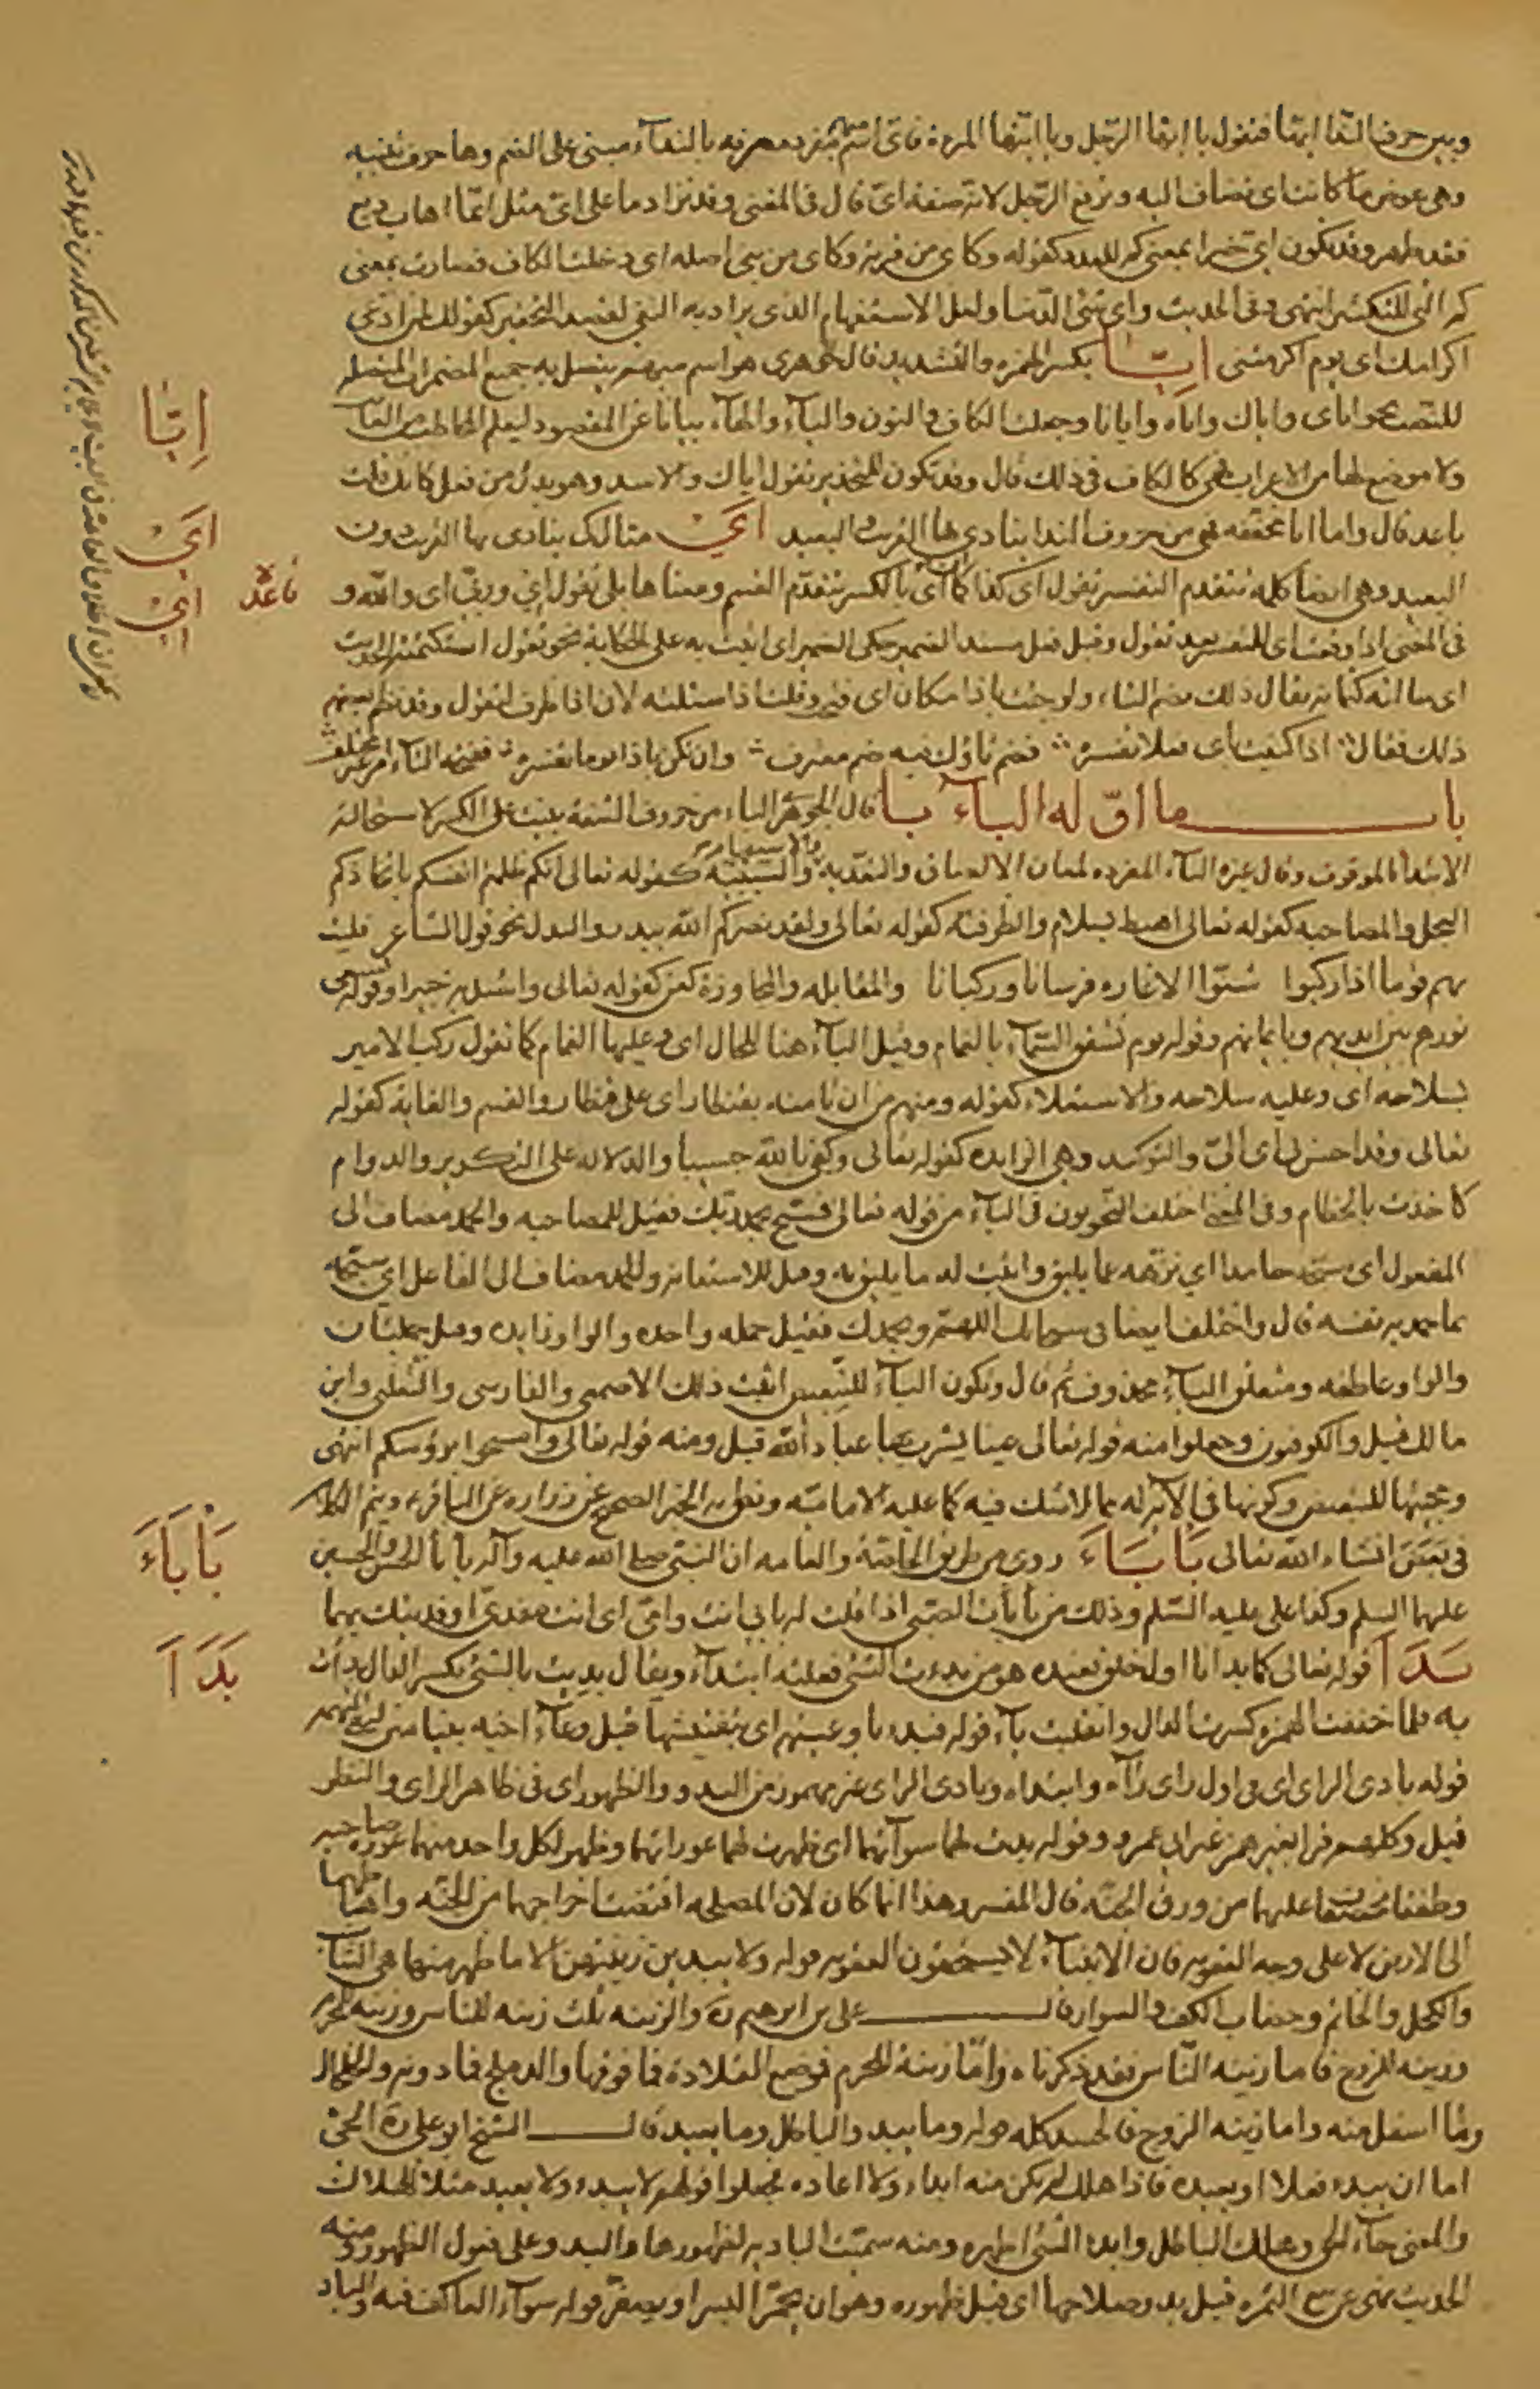 وبين حرف النداء ايها فتقول يا ايها الرجل ويا ايتها المرءة فاى اسم مبهم مفرد معرفه بالنداء مبنى على الضم وها حرف تنبيه
وهى عوض ما كانت اى تضاف اليه وترفع الرجل لانه صفة اى قال فى المغنى وقد تزاد ما على اى مثل ايما اهاب دبغ
فقد طهر وقد تكون اى خبرا بمعنى كم للعدد كقوله وكاى من قرية وكاى من نبى اصله اى دخلت الكاف فصارت بمعنى
كم التى للتكثير انتهى وفى الحديث واى شئ الدنيا ولعل الاستفهام الذى يراد به النفى لقصد التحقير كقولك لمن ادعى
اكرامك اى يوم اكرمتنى ايا بكسر الهمزه والتشديد قال الجوهرى هو اسم مبهم يتصل به جميع المضمرات المتصله
للنصب نحو اياى واياك واياه وايانا وجعلت الكاف والنون والياء والهاء بيانا عن المقصود ليعلم المخاطب من الغائب
ولا موضع لها من الاعراب فهى كالكاف فى ذلك قال وقد تكون للتحذير تقول اياك والاسد وهو بدل من فعل كانك قلت
باعد قال واما ايا مخففه فهى من حروف النداء ينادى بها القريب والبعيد اى مثال كى ينادى بها القريب دون
البعيد وهى ايضا كلمه تتقدم التفسير تقول اى كذا كما ان اى بالكسر تتقدم القسم ومعناها بلى تقول اى وربى اى والله و
فى المغنى اذا وقعت اى للتفسير بعد تقول وقبل فعل مسند للضمير حكى الضمير اى اتيت به على الحكاية نحو تقول استكتمته الحديث
اى سالته كتمانه يقال ذلك بضم التاء ولو جئت باذا مكان اى فتحت وقلت اذا سئلته لان اذا ظرف لتقول وقد نظم بعضهم
ذلك فقال اذا كنيت باى فعلا تفسره فضم تاؤك فيه ضم معترف وان تكن باذا يوما تفسره ففتحة التاء امر غير مختلف
باب ما اوله الباء با قال الجوهرى الباء من حروف الشفة بنيت على الكسر لاستحالة
الابتداء بالموقوف وقال غيره الباء المفرده لمعان الالصاق والتعدية والاستعانة والسببية كقوله تعالى انكم ظلمتم انفسكم باتخاذكم
العجل والمصاحبه كقوله تعالى اهبط بسلام والظرفية كقوله تعالى ولقد نصركم الله ببدر والبدل نحو قول الشاعر فليت
بهم قوما اذا ركبوا شنوا الاغاره فرسانا وركبانا والمقابله والمجاوزة كعن كقوله تعالى واسئل به خبيرا وقوله يسعى
نورهم بين ايديهم وبايمانهم وقوله يوم تشقق السماء بالغمام وقيل الباء هنا للحال اى وعليها الغمام كما تقول ركب الامير
بسلاحه اى وعليه سلاحه والاستعلاء كقوله ومنهم من ان تامنه بقنطار اى على قنطار والقسم والغاية كقوله
تعالى وقد احسن بى اى الى والتوكيد وهى الزايده كقوله تعالى وكفى بالله حسيبا والدلاله على التكرير والدوام
كاخذت بالخطام وفى المغنى اختلف النحويون فى الباء من قوله تعالى فسبح بحمد ربك فقيل للمصاحبه والحمد مضاف الى
المفعول اى سبحه حامدا اى نزهه عما يليق واثبت له ما يليق به وقيل للاستعانه والحمد مضاف الى الفاعل اى سبحه
بما حمد به نفسه قال واختلف ايضا فى سبحانك اللهم وبحمدك فقيل جمله واحده والواو زايده وقيل جملتان
والواو عاطفه ومتعلق الباء محذوف ثم قال وتكون الباء للتبعيض اثبت ذلك الاصمعى والفارسى والثعلبى وابن
مالك قيل والكوفيون وجعلوا منه قوله تعالى عينا يشرب بها عباد الله قيل ومنه قوله تعالى وامسحوا برؤسكم انتهى
ومجيئها للتبعيض وكونها فى الآية له مما لا شك فيه كما عليه الامامية ونطق به الخبر الصحيح عن زراره عن الباقر ع ويتم الكلام
فى بعض انشاء الله تعالى بأبأء روى من طريق الخاصة والعامه ان النبى صلى الله عليه وآله بأبأ الحسن والحسين
عليهما السلم وكذا على عليه السلم وذلك من بأبأت الصبى اذا قلت له بابى انت وامى اى انت مفدى او فديتك بهما
بدأ قوله تعالى كما بدانا اول خلق نعيده هو من بدءت الشئ فعلته ابتداء ويقال بديت بالشئ بكسر الدال بدأت
به فلما خففت الهمزه كسرت الدال وانقلبت ياء قوله فبدء باوعيتهم اى بتفتيشها قبل وعاء اخيه بنيامين لنفى التهمه
قوله بادى الراى اى فى اول راى رآه وابتداء وبادى الراى غير مهموز من البدو والظهور اى فى ظاهر الراى والنظر
قيل وكلهم قرا بغير همز غير ابى عمرو وقوله بدت لهما سوآتهما اى ظهرت لهما عوراتهما وظهر لكل واحد منهما عورة صاحبه
وطفقا يخصفان عليهما من ورق الجنه قال المفسر وهذا انما كان لان المصلحه اقتضت اخراجهما من الجنه واهباطهما
الى الارض لا على وجه العقوبه فان الانبياء لا يستحقون العقوبه قوله ولا يبدين زينتهن الا ما ظهر منها هى الثياب
والكحل والخاتم وخضاب الكف والسوار قال على بن ابرهيم ره والزينه ثلث زينه للناس وزينه للمحرم
وزينه للزوج فاما زينه الناس فقد ذكرناه واما زينة المحرم فوضع القلادة فما فوقها والدملج فما دونه والخلخال
وما اسفل منه واما زينه الزوج فالجسد كله قوله وما يبدء الباطل وما يعيد قال الشيخ ابو على ره الحى
اما ان يبدء فعلا او يعيده فاذا هلك لم يكن منه ابداء ولا اعاده فجعلوا قولهم لا يبدء ولا يعيد مثلا للهلاك
والمعنى جاء الحق وهلك الباطل وابدء الشئ اظهره ومنه سميت الباديه لظهورها والبدو على فعول الظهور ومنه
الحديث نهى عن بيع الثمره قبل بدو صلاحها اى قبل ظهوره وهو ان يحمر البسر او يصفر قوله سواء العاكف فيه والباد
ايا
اى
اى
قاعده
بأبأء
بدأ